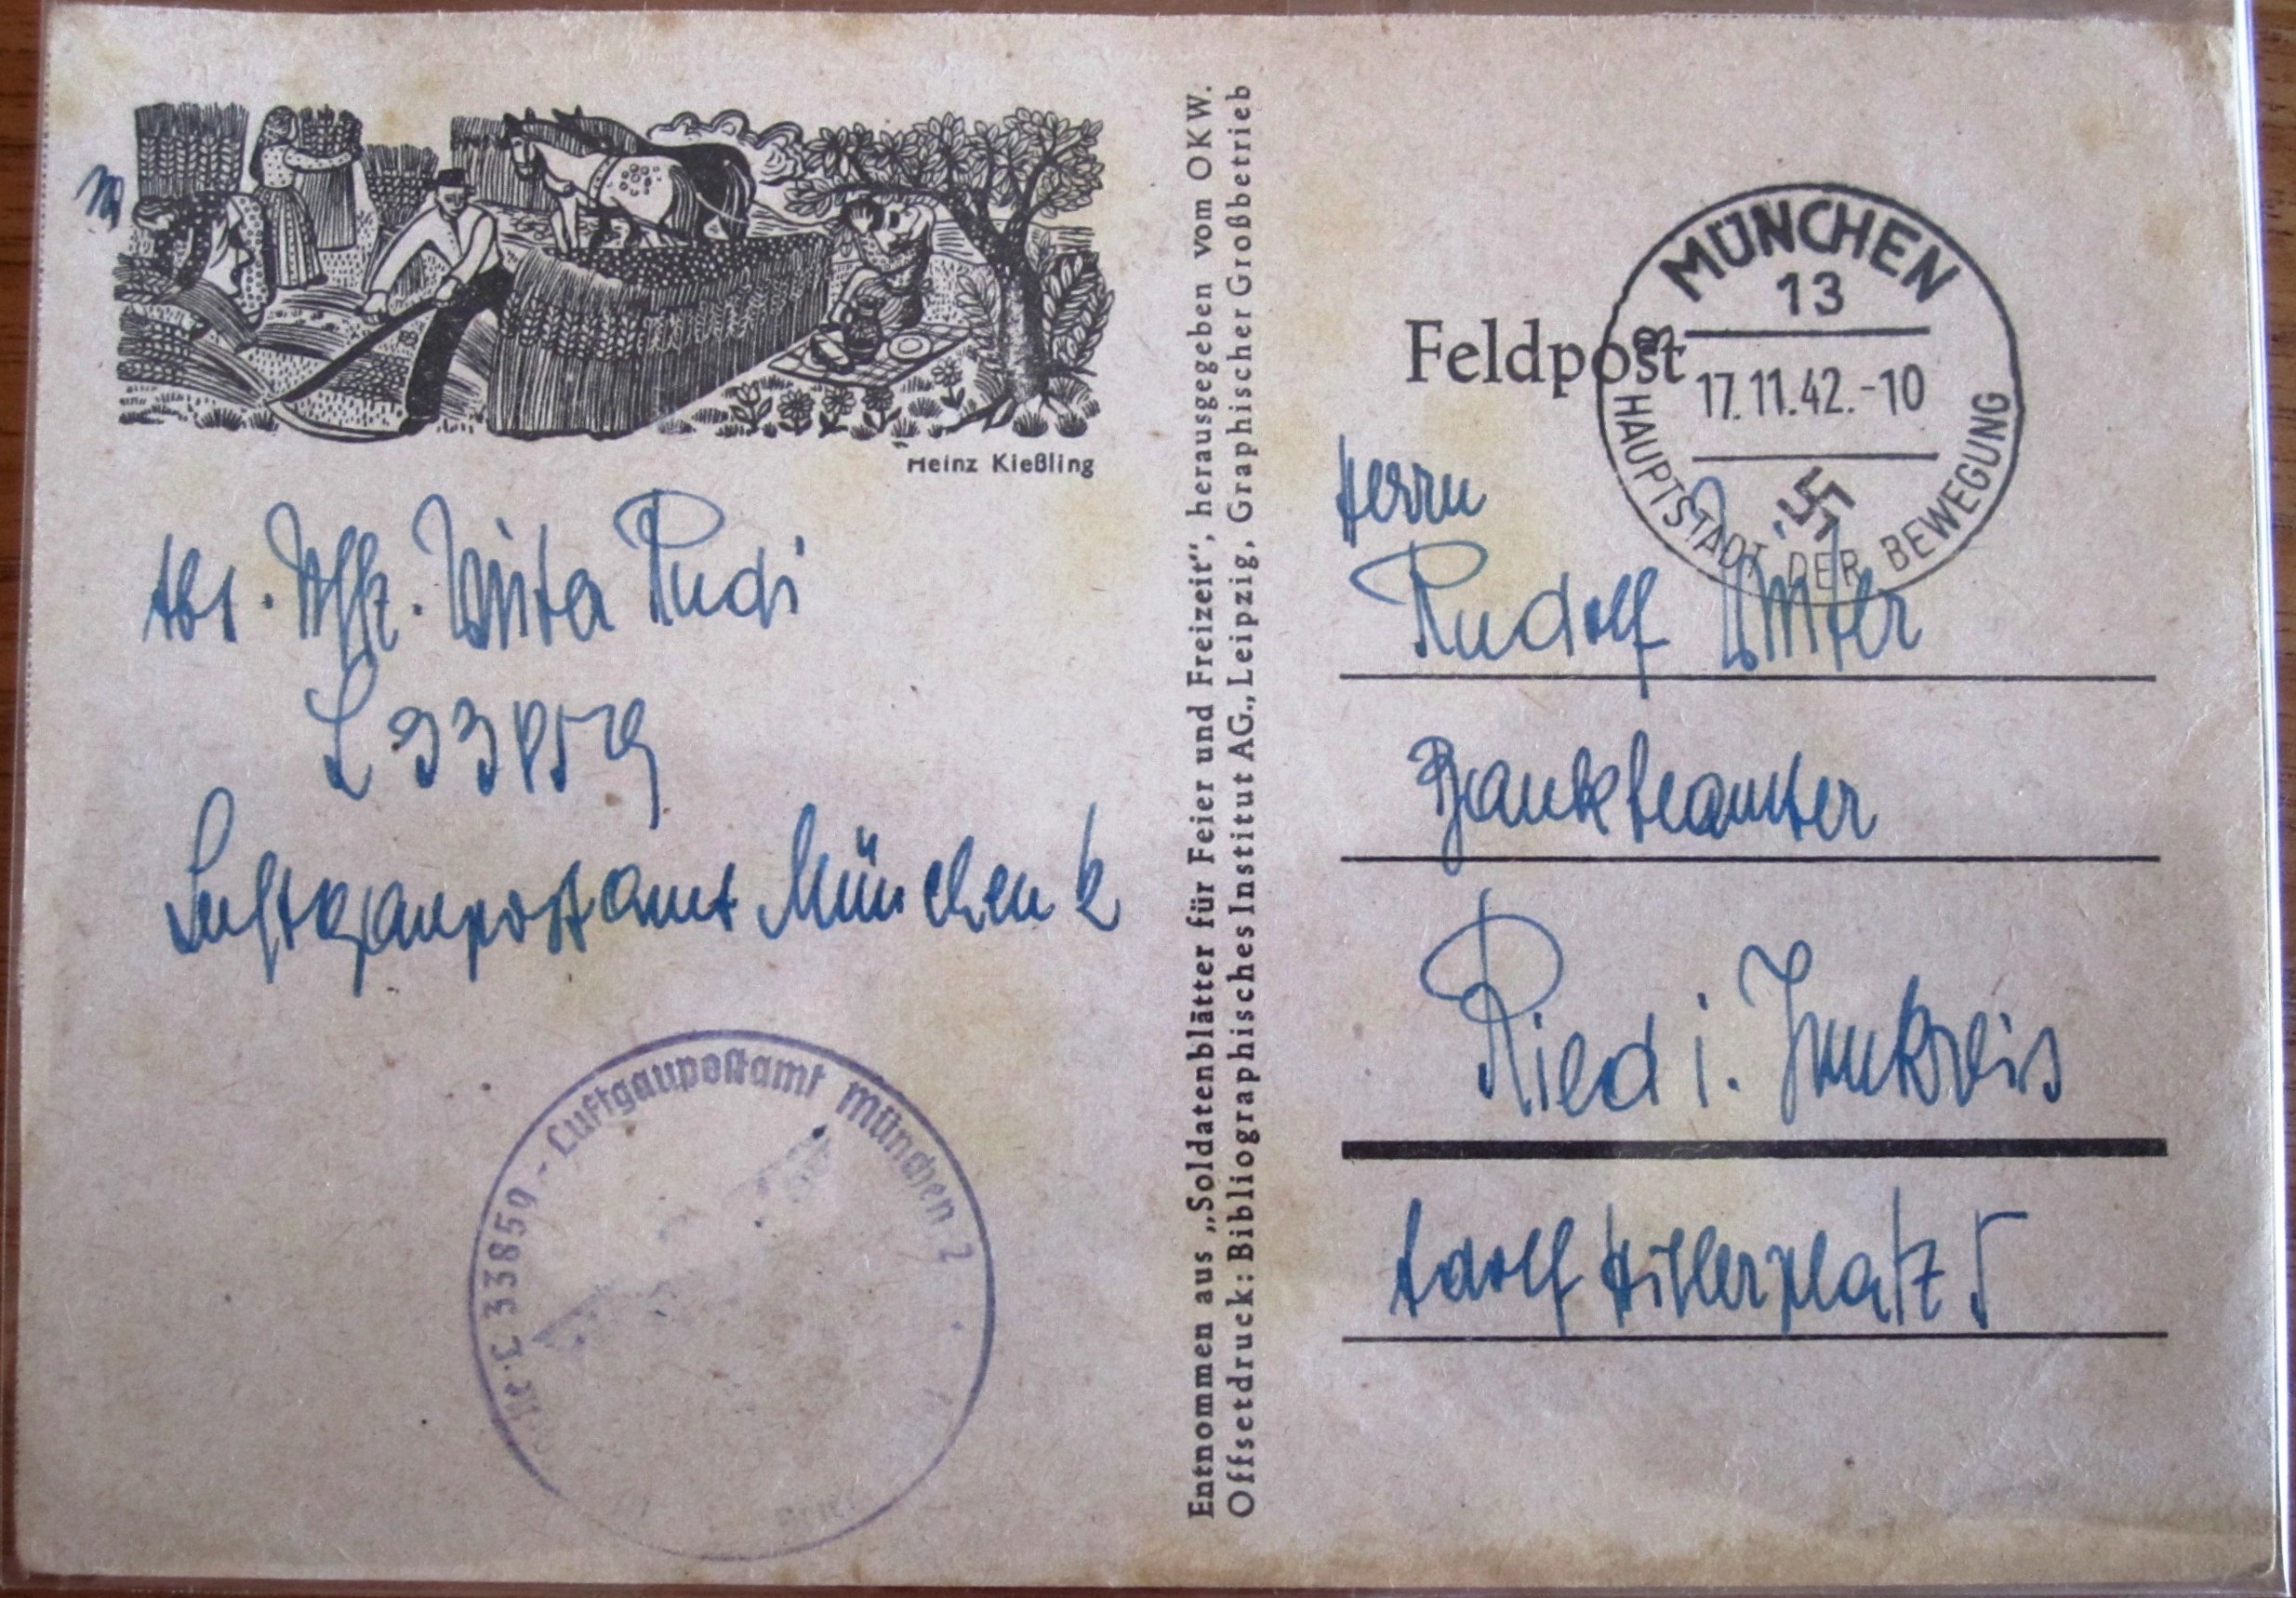 Heinz Kießling
Abs. Uffz. Winter Rudi
L 33859
Luftgaupostamt München 2
L 33859 - Luftgaupostamt München 2
Entnommen aus „Soldatenblätter für Feier und Freizeit“, herausgegeben vom OKW.
Offsetdruck: Bibliographisches Institut AG., Leipzig, Graphischer Großbetrieb
Feldpost
MÜNCHEN
13
B
17.11.42.-10
HAUPTSTADT DER BEWEGUNG
Herrn
Rudolf Winter
Bankbeamter
Ried i. Innkreis
Adolf Hitlerplatz 5